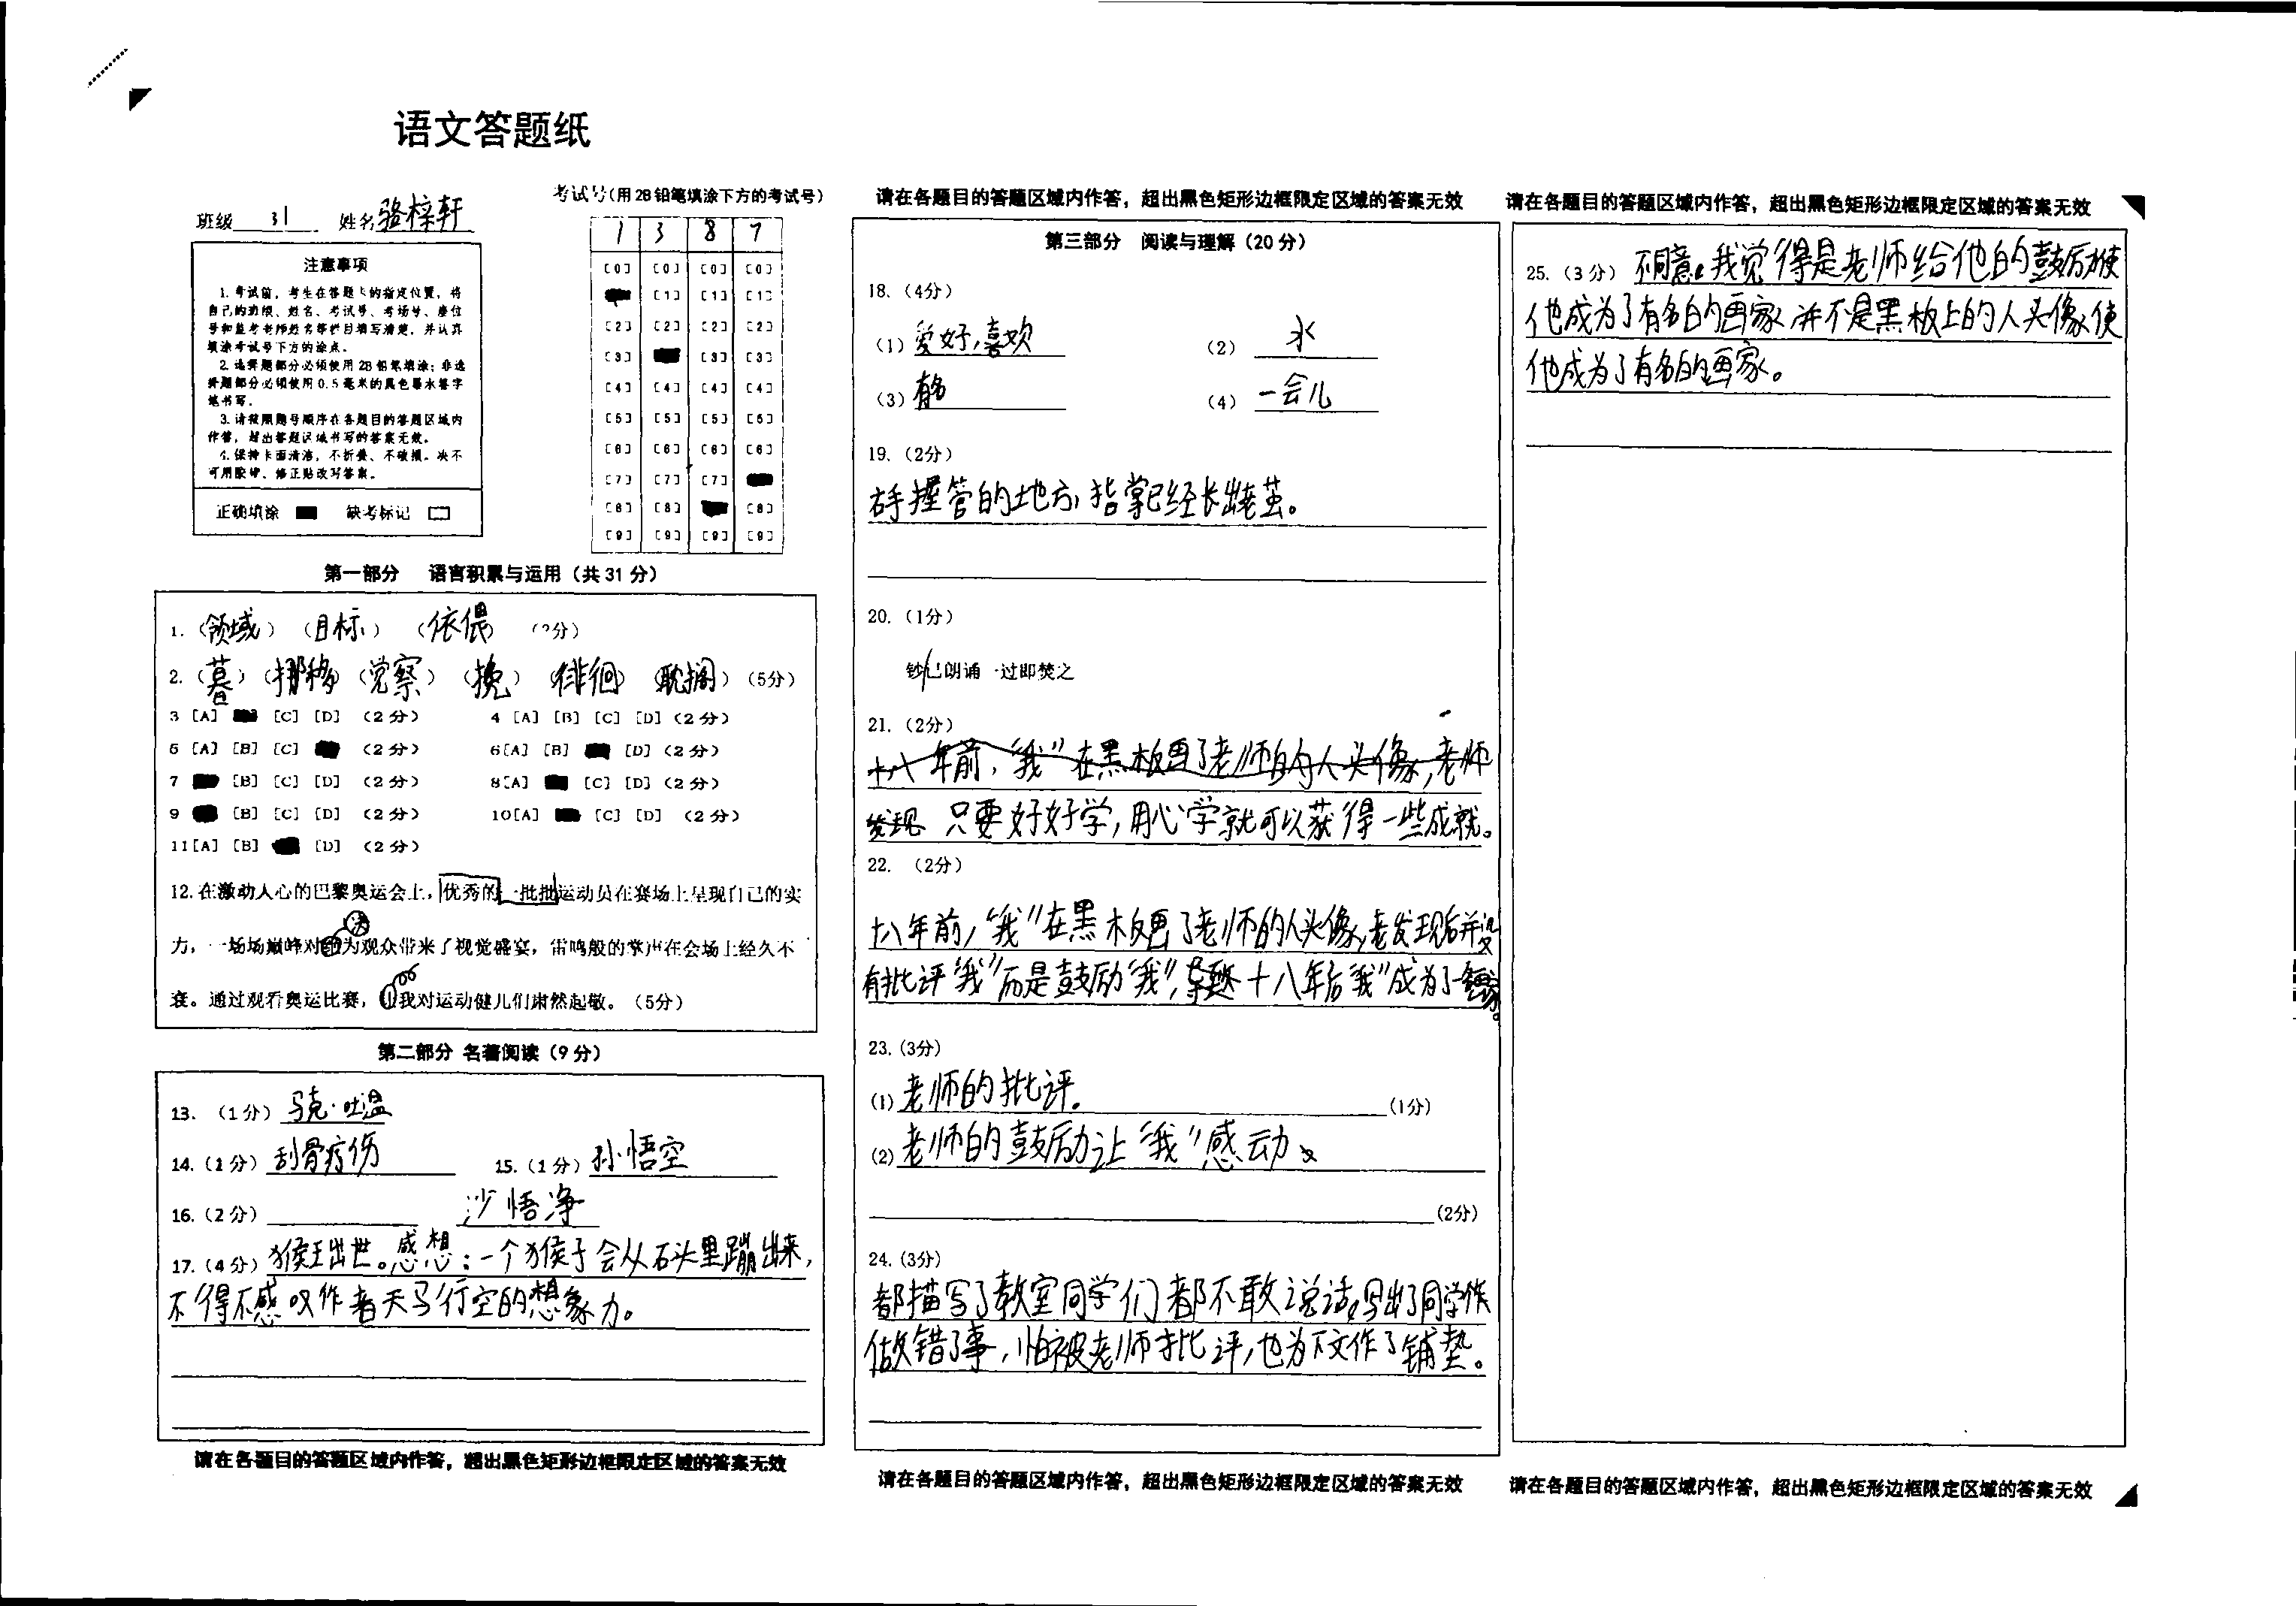 语文答题纸
班级 31 姓名 骆梓轩
考试号(用2B铅笔填涂下方的考试号)
1 3 8 7
[0] [0] [0] [0]
[1] [1] [1]
[2] [2] [2] [2]
[3] [3] [3]
[4] [4] [4] [4]
[5] [5] [5] [5]
[6] [6] [6] [6]
[7] [7] [7]
[8] [8] [8]
[9] [9] [9] [9]
注意事项
1.考试前,考生在答题卡的指定位置,将
自己的班级、姓名、考试号、考场号、座位
号和监考老师姓名等栏目填写清楚,并认真
填涂考试号下方的涂点。
2.选择题部分必须使用2B铅笔填涂;非选
择题部分必须使用0.5毫米的黑色墨水签字
笔书写。
3.请按照题号顺序在各题目的答题区域内
作答,超出答题区域书写的答案无效。
4.保持卡面清洁,不折叠、不破损。决不
可用胶带、修正贴改写答案。
正确填涂 缺考标记
第一部分 语言积累与运用(共31分)
1.(领域)(目标)(依偎)
2.(暮)(挪移)(觉察)(挽)(徘徊)(耽搁)(5分)
3 [A] [C] [D] (2分) 4 [A] [B] [C] [D] (2分)
5 [A] [B] [C] (2分) 6[A] [B] [D] (2分)
7 [B] [C] [D] (2分) 8[A] [C] [D] (2分)
9 [B] [C] [D] (2分) 10[A] [C] [D] (2分)
11[A] [B] [D] (2分)
12.在激动人心的巴黎奥运会上,优秀的一批批运动员在赛场上呈现自己的实
力,一场场巅峰对决为观众带来了视觉盛宴,雷鸣般的掌声在会场上经久不
衰。通过观看奥运比赛,我对运动健儿们肃然起敬。(5分)
第二部分 名著阅读(9分)
13.(1分)马克·吐温
14.(1分)刮骨疗伤 15.(1分)孙悟空
16.(2分) 沙悟净
17.(4分)猴王出世。感想:一个猴子会从石头里蹦出来,
不得不感叹作者天马行空的想象力。
请在各题目的答题区域内作答,超出黑色矩形边框限定区域的答案无效
请在各题目的答题区域内作答,超出黑色矩形边框限定区域的答案无效
第三部分 阅读与理解(20分)
18.(4分)
(1)爱好,喜欢 (2)水
(3)有名 (4)一会儿
19.(2分)
右手握管的地方,指掌已经长出老茧。
20.(1分)
钞已朗诵一过即焚之
21.(2分)
十八年前,“我”在黑板画了老师的人头像,老师
发现 只要好好学,用心学就可以获得一些成就。
22.(2分)
十八年前,“我”在黑板画了老师的人头像,老发现后并没
有批评“我”而是鼓励“我”, 十八年后“我”成为了
23.(3分)
(1)老师的批评。 (1分)
(2)老师的鼓励让“我”感动。
(2分)
24.(3分)
都描写了教室同学们都不敢说话,写出了同学作
做错了事,怕被老师批评,也为下文作了铺垫。
请在各题目的答题区域内作答,超出黑色矩形边框限定区域的答案无效
请在各题目的答题区域内作答,超出黑色矩形边框限定区域的答案无效
25.(3分)不同意。我觉得是老师给他的鼓励使
他成为了有名的画家,并不是黑板上的人头像使
他成为了有名的画家。
请在各题目的答题区域内作答,超出黑色矩形边框限定区域的答案无效